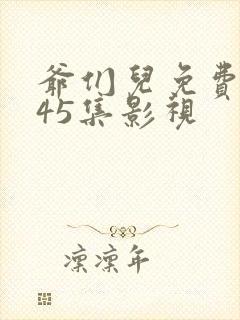 爺们兒免費
45集影視
凛凛年